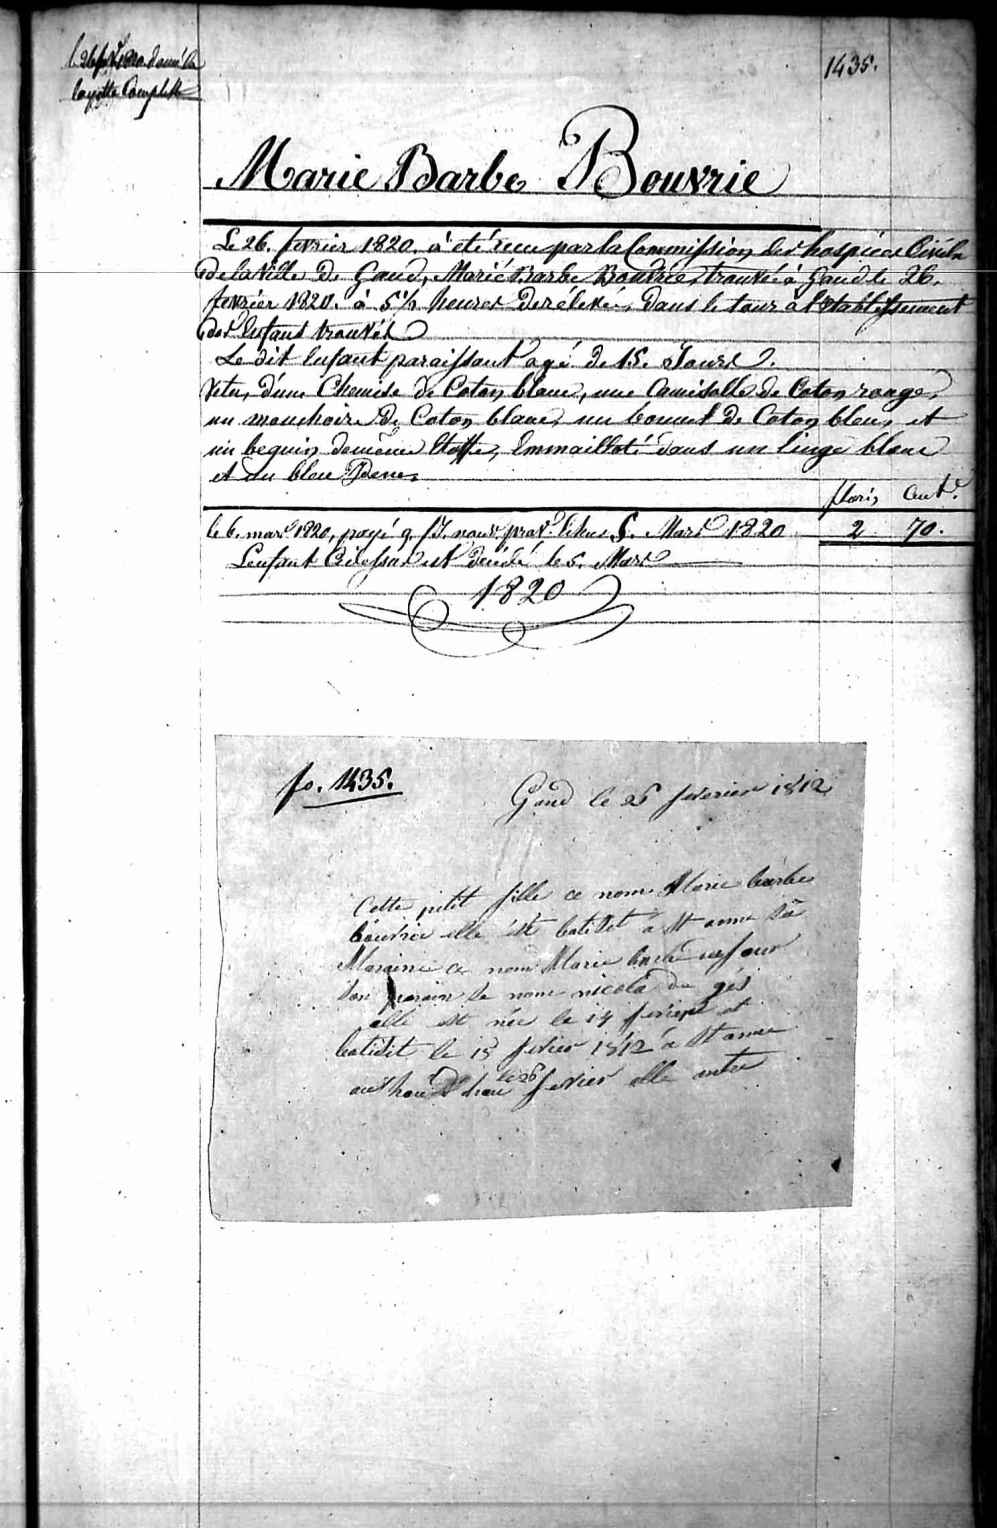 le 26 fevr 1820. donné la
layette Complette
1435.
Marie Barbe Bouvrie
Le 26. fevrier 1820. à été recue par la Commission des hospices Civils
de la Ville De Gand, Marie Barbe Bouvrie, trouvée à Gand le 26.
fevrier 1820. à 5½ heures de relevée, dans le tour à l'établissement
des Enfans trouvés
Le dit Enfant paraissant agé de 15. Jours.
Vetu, d'une Chemise de Coton blanc, une Camisolle de Coton rouge,
un mouchoir de Coton blanc, un bonnet de Coton bleu, et
un beguin de même Etoffe, Emmailloté dans un linge blanc
et du bleu
floris Cents.
le 6. mars 1820, payé 5. Mars 1820. 2 70.
L'enfant Cidessus est décédé le 5. Mars
1820
fo. 1435.
Gand le 26 feverier 1812
Cette petit fille ce nome Marie barbe
bouvrie elle est batisét a St anne Sa
Maraine ce nom Marie
Son parain Se nome nicola du
elle est née le 14 et
batisit le 15 fevrier 1812 a St anne
le 26 fevrier elle